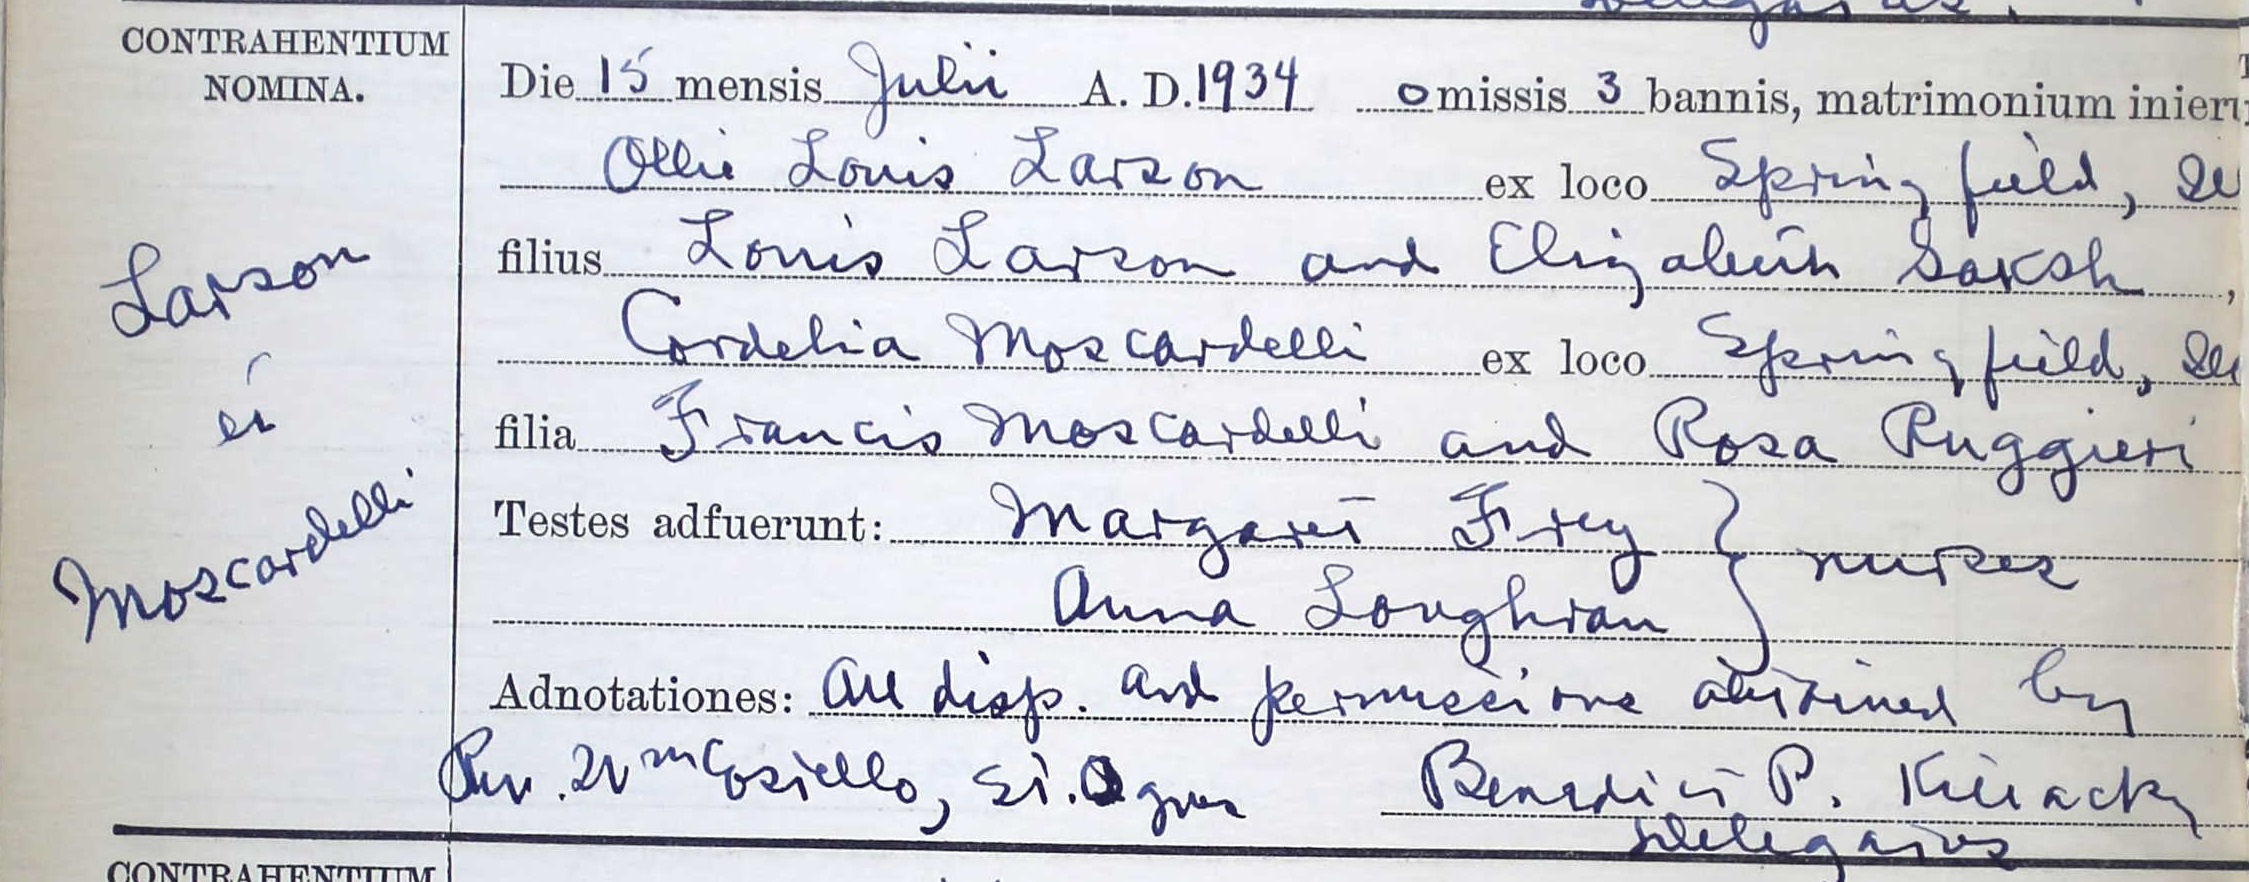 CONTRAHENTIUM
NOMINA.
Larson
et
Moscardelli
Die 15 mensis Julii A. D. 1934 omissis 3 bannis, matrimonium inier
Ollie Louis Larson ex loco Springfield, Ill
filius Louis Larson and Elizabeth Saksh,
Cordelia Moscardelli ex loco Springfield, Ill
filia Francis Moscardelli and Rosa Ruggieri
Testes adfuerunt: Margaret Frey } nurses
Anna Loughran
Adnotationes: All disp. and permissions obtained by
Rev. Wm Costello, St. Agnes Benedict P.
Delegatus
CONTRAHENTIUM